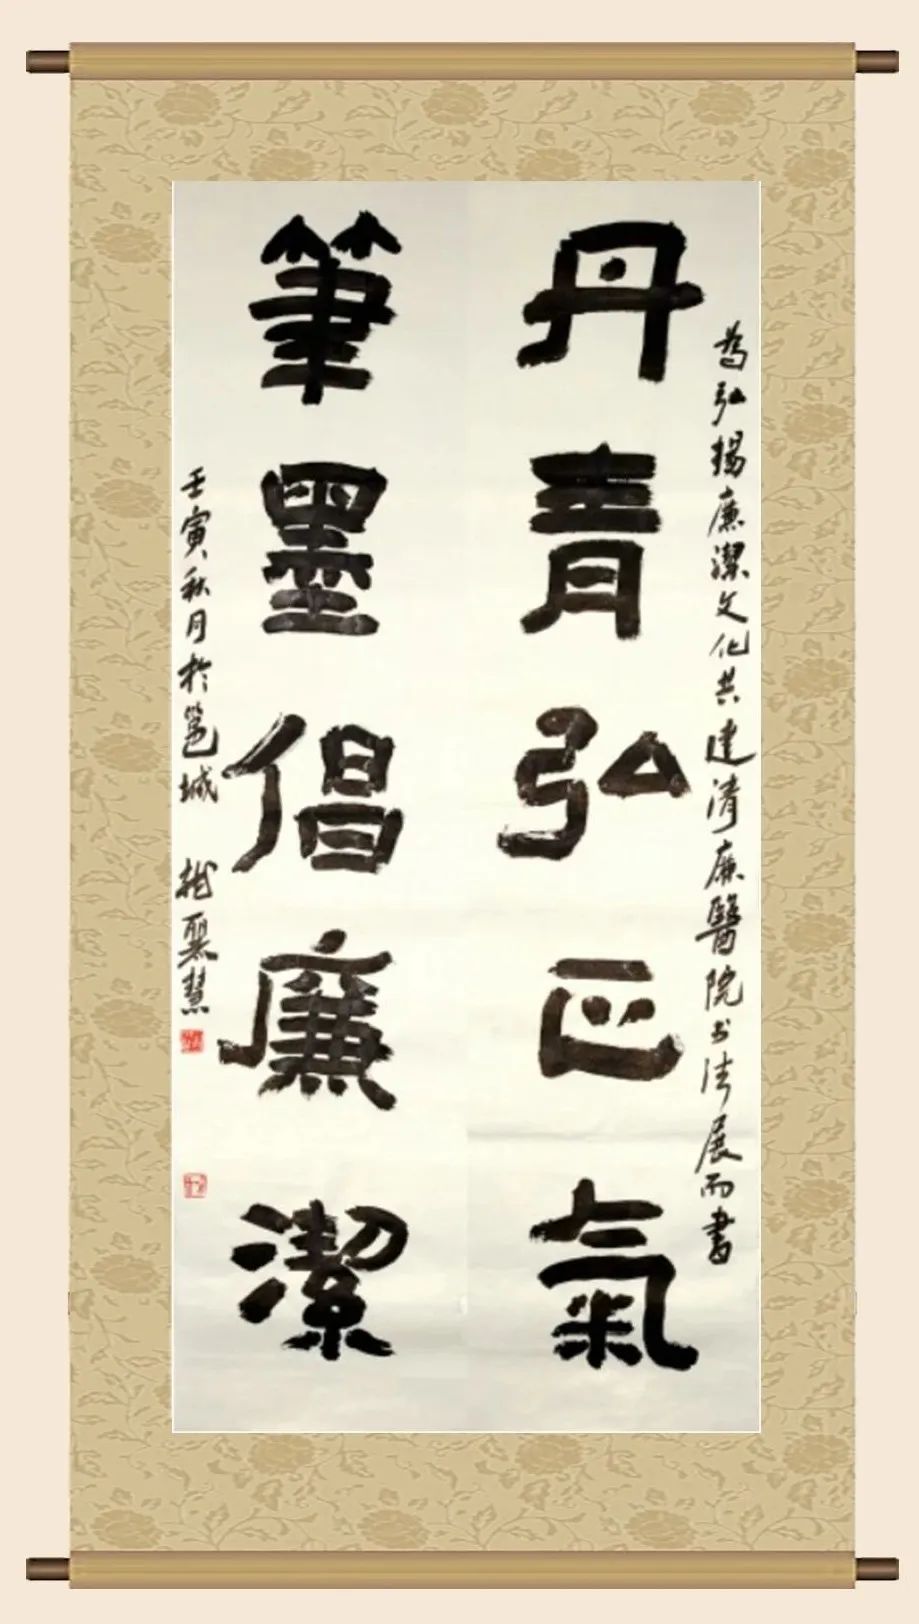 為弘揚廉潔文化共建清廉醫院书法展而書
丹青弘正氣
筆墨倡廉潔
壬寅秋月於邕城
慧